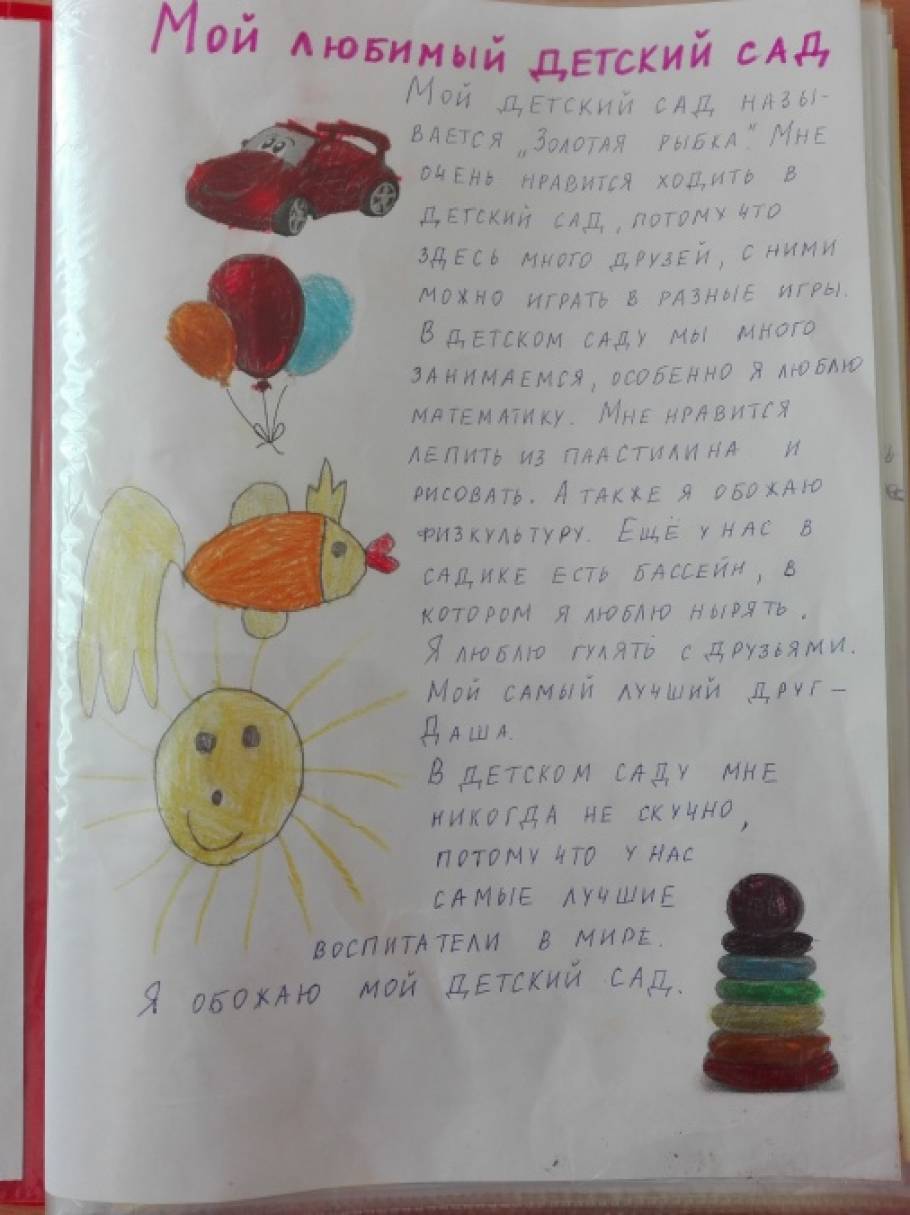 Мой любимый детский сад
Мой детский сад назы-
вается „Золотая рыбка". Мне
очень нравится ходить в
детский сад, потому что
здесь много друзей, с ними
можно играть в разные игры.
В детском саду мы много
занимаемся, особенно я люблю
математику. Мне нравится
лепить из паастилина и
рисовать. А также я обожаю
физкультуру. Ещё у нас в
садике есть бассейн, в
котором я люблю нырять.
Я люблю гулять с друзьями.
Мой самый лучший друг –
Даша.
В детском саду мне
никогда не скучно,
потому что у нас
самые лучшие
воспитатели в мире.
Я обожаю мой детский сад.